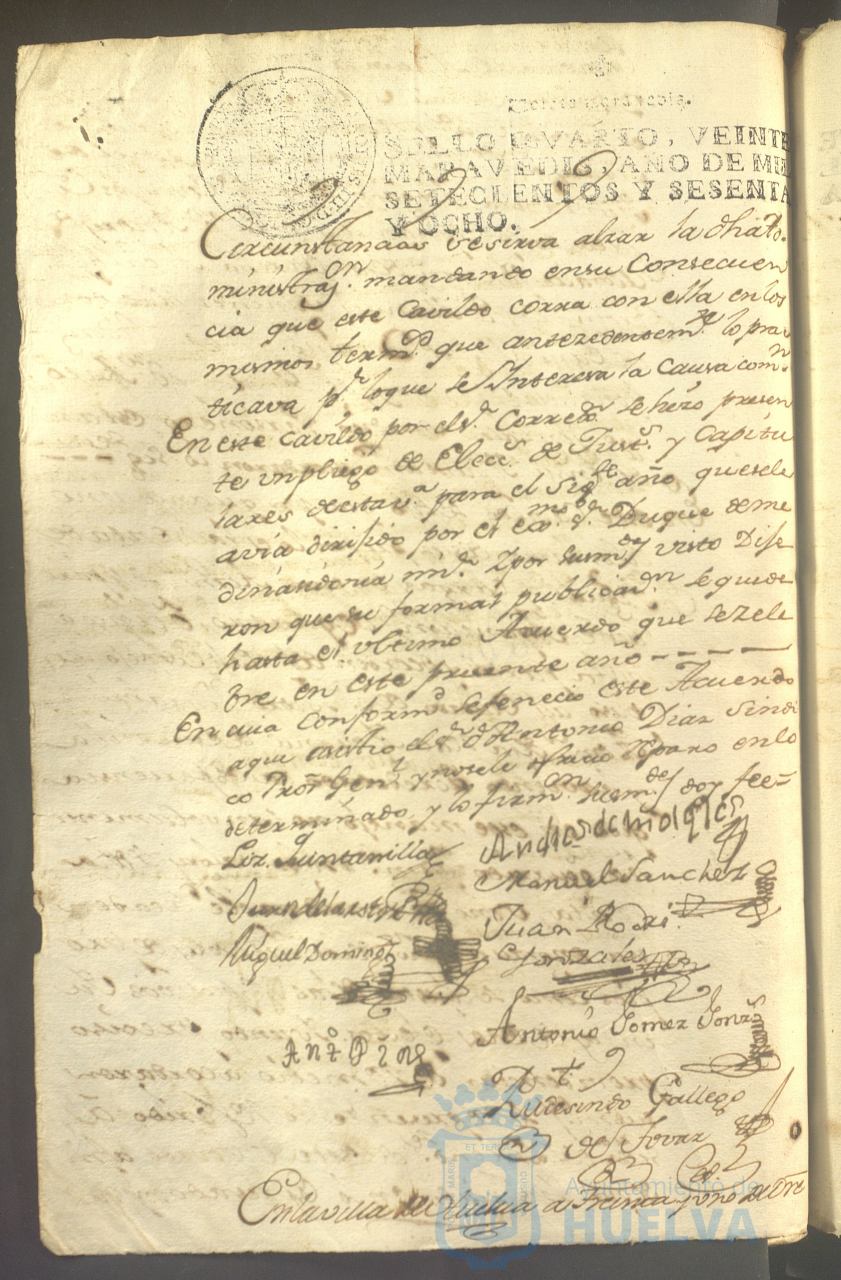 Veinte maravedis.
SELLO QVARTO, VEINTE
MARAVEDIS, AÑO DE MIL
SETECIENTOS Y SESENTA
Y OCHO.
Circunstancias se sirva alzar la dha to.
ministrazon. mandando en su Consecuen
cia que este Cavildo corra con ella en los
mismos termos. que antezedentemte. lo prac
ticava pr. loque se Interesa la Causa comn.
En este cavildo por el Sr. Corregr. se hizo presen
te un pliego de Elecs. de Justa. y Capitu
lares de esta Va. para el sigte. año que se le
avia dirijido por el exmo. Sr. Duque de me
dinasidonia mi Sr. y por sus mds. visto Dije
ron que su formal publicazon. se quede
hasta el ultimo Acuerdo que se zele
bre en este presente año - - - -
En cuia Conformd. se fenecio este Acuerdo
a que asistio el Sr. Dn. Antonio Diaz Sindi
co Pror. Genl. y no se le ofrecio reparo en lo
determinado, y lo firmon. sus mds. doy fee=
Loz. Quintanilla
Andres de
Manuel Sanchez
Juan de la
Juan Rodri.
Gonzales
Miguel Doming
Antonio Gomez Gonzs
Anto
Rudesindo Gallego
de Tovar
En la villa de Huelva a treinta y uno de Dre
Ayuntamiento de
HUELVA